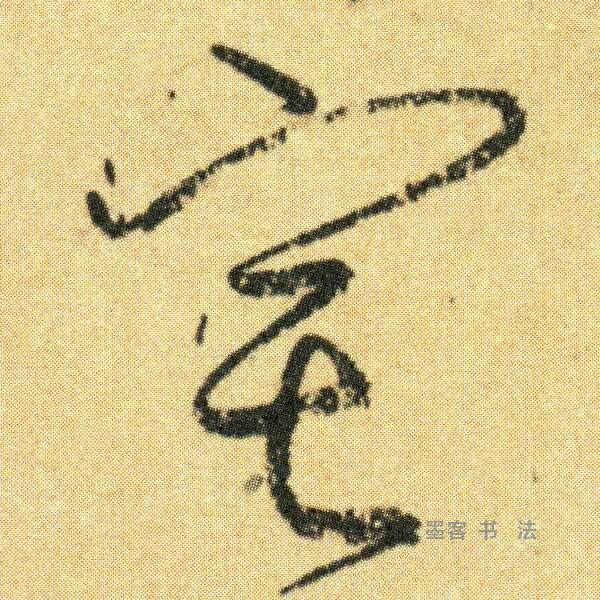 室
墨客书法